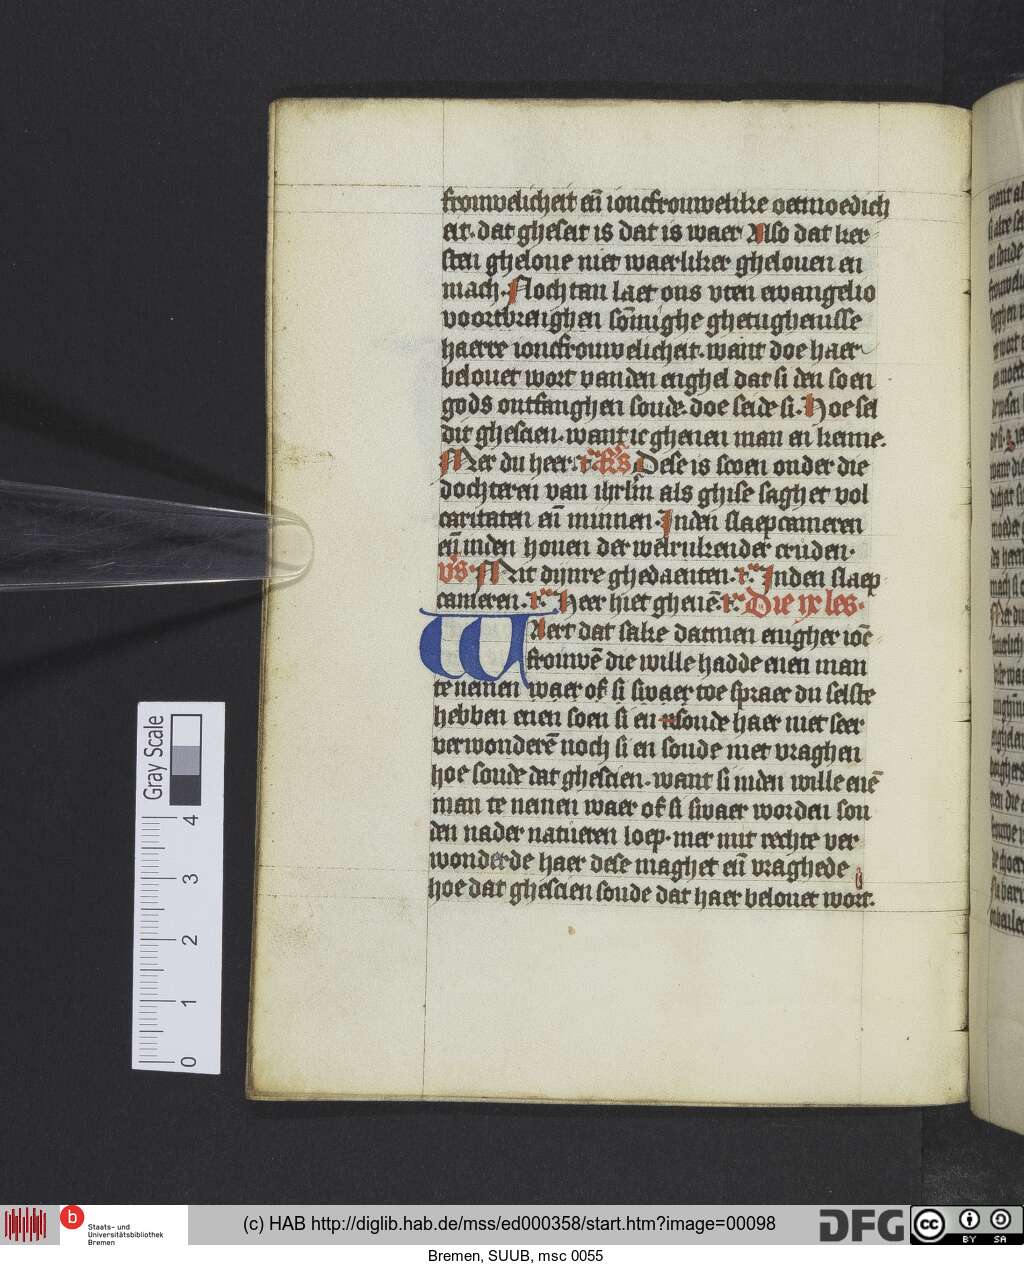 frouwelicheit eñ ioncfrouwelike oetmoedich
eit. dat gheseit is dat is waer Also dat ker
sten gheloue niet waerliker ghelouen en
mach. Nochtan laet ons vten ewangelio
voortbrenghen sōmighe ghetughenisse
haerre ioncfrouwelicheit. want doe haer
belouet wort vanden enghel dat si den soen
gods ontfanghen soude. doe seide si. Hoe sel
dit ghescien. want ic ghenen man en kenne.
Mer du heer. Dese is scoen onder die
dochteren van ihrlm als ghise saghet vol
caritaten eñ minnen. Inden slaepcameren
eñ inden houen der welrukender cruden.
vs. Mit dynre ghedaenten. Inden slaep
cameren. Heer hiet gheuē. Die ix les.
Waert dat sake datmen enigher ioē
frouwē die wille hadde enen man
te nemen waer of si swaer toe spraec du selste
hebben enen soen si en soude haer niet seer
verwonderē noch si en soude niet vraghen
hoe soude dat ghescien. want si inden wille enē
man te nemen waer of si swaer worden sou
den nader natueren loep. mer mit rechte ver
wonderde haer dese maghet eñ vraghede
hoe dat ghescien soude dat haer belouet wort.
Gray Scale
0 1 2 3 4
Staats- und
Universitätsbibliothek
Bremen
(c) HAB http://diglib.hab.de/mss/ed000358/start.htm?image=00098
DFG
cc BY SA
Bremen, SUUB, msc 0055